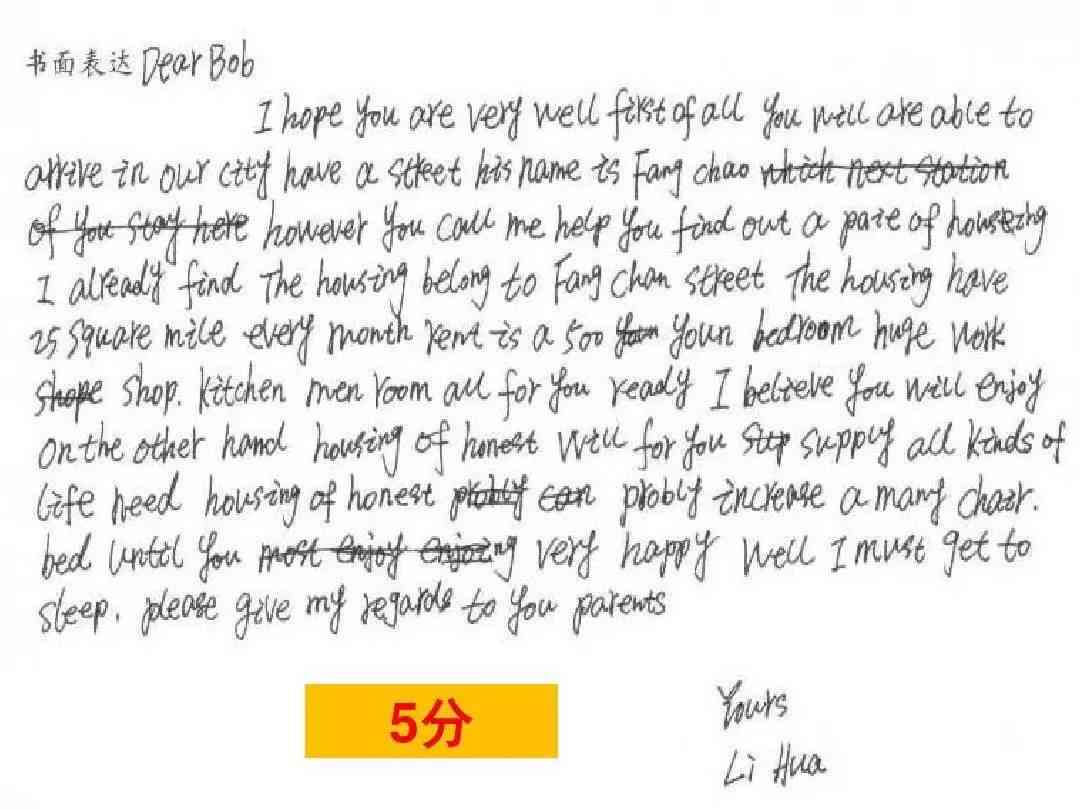 书面表达 Dear Bob
I hope you are very well first of all you will are able to
arrive in our city have a street his name is Fang chao which next station
of you stay here however you call me help you find out a paie of housezing
I already find The housing belong to Fang chan street The housing have
25 square mile every month rent is a 500 youn bedroom huge work
shope shop. kitchen men room all for you ready I believe you will enjoy
on the other hand housing of honest will for you sup supply all kinds of
life need housing of honest probly can probly increase a many chair.
bed until you most enjoy enjoing very happy well I must get to
sleep. please give my regards to you parents
5分
Yours
Li Hua